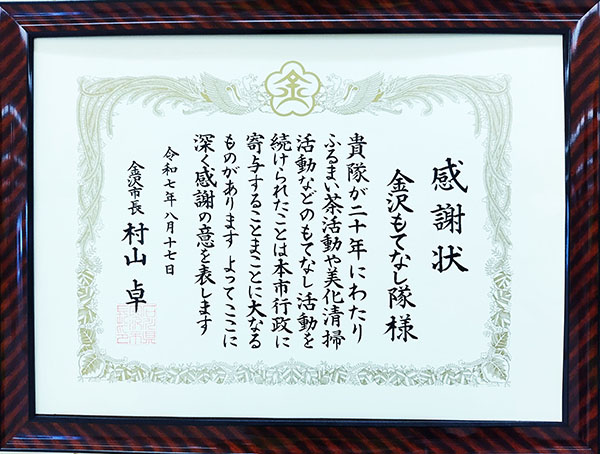 金
感謝状
金沢もてなし隊様
貴隊が二十年にわたり
ふるまい茶活動や美化清掃
活動などのもてなし活動を
続けられたことは本市行政に
寄与することまことに大なる
ものがあります よってここに
深く感謝の意を表します
令和七年八月十七日
金沢市長 村山 卓